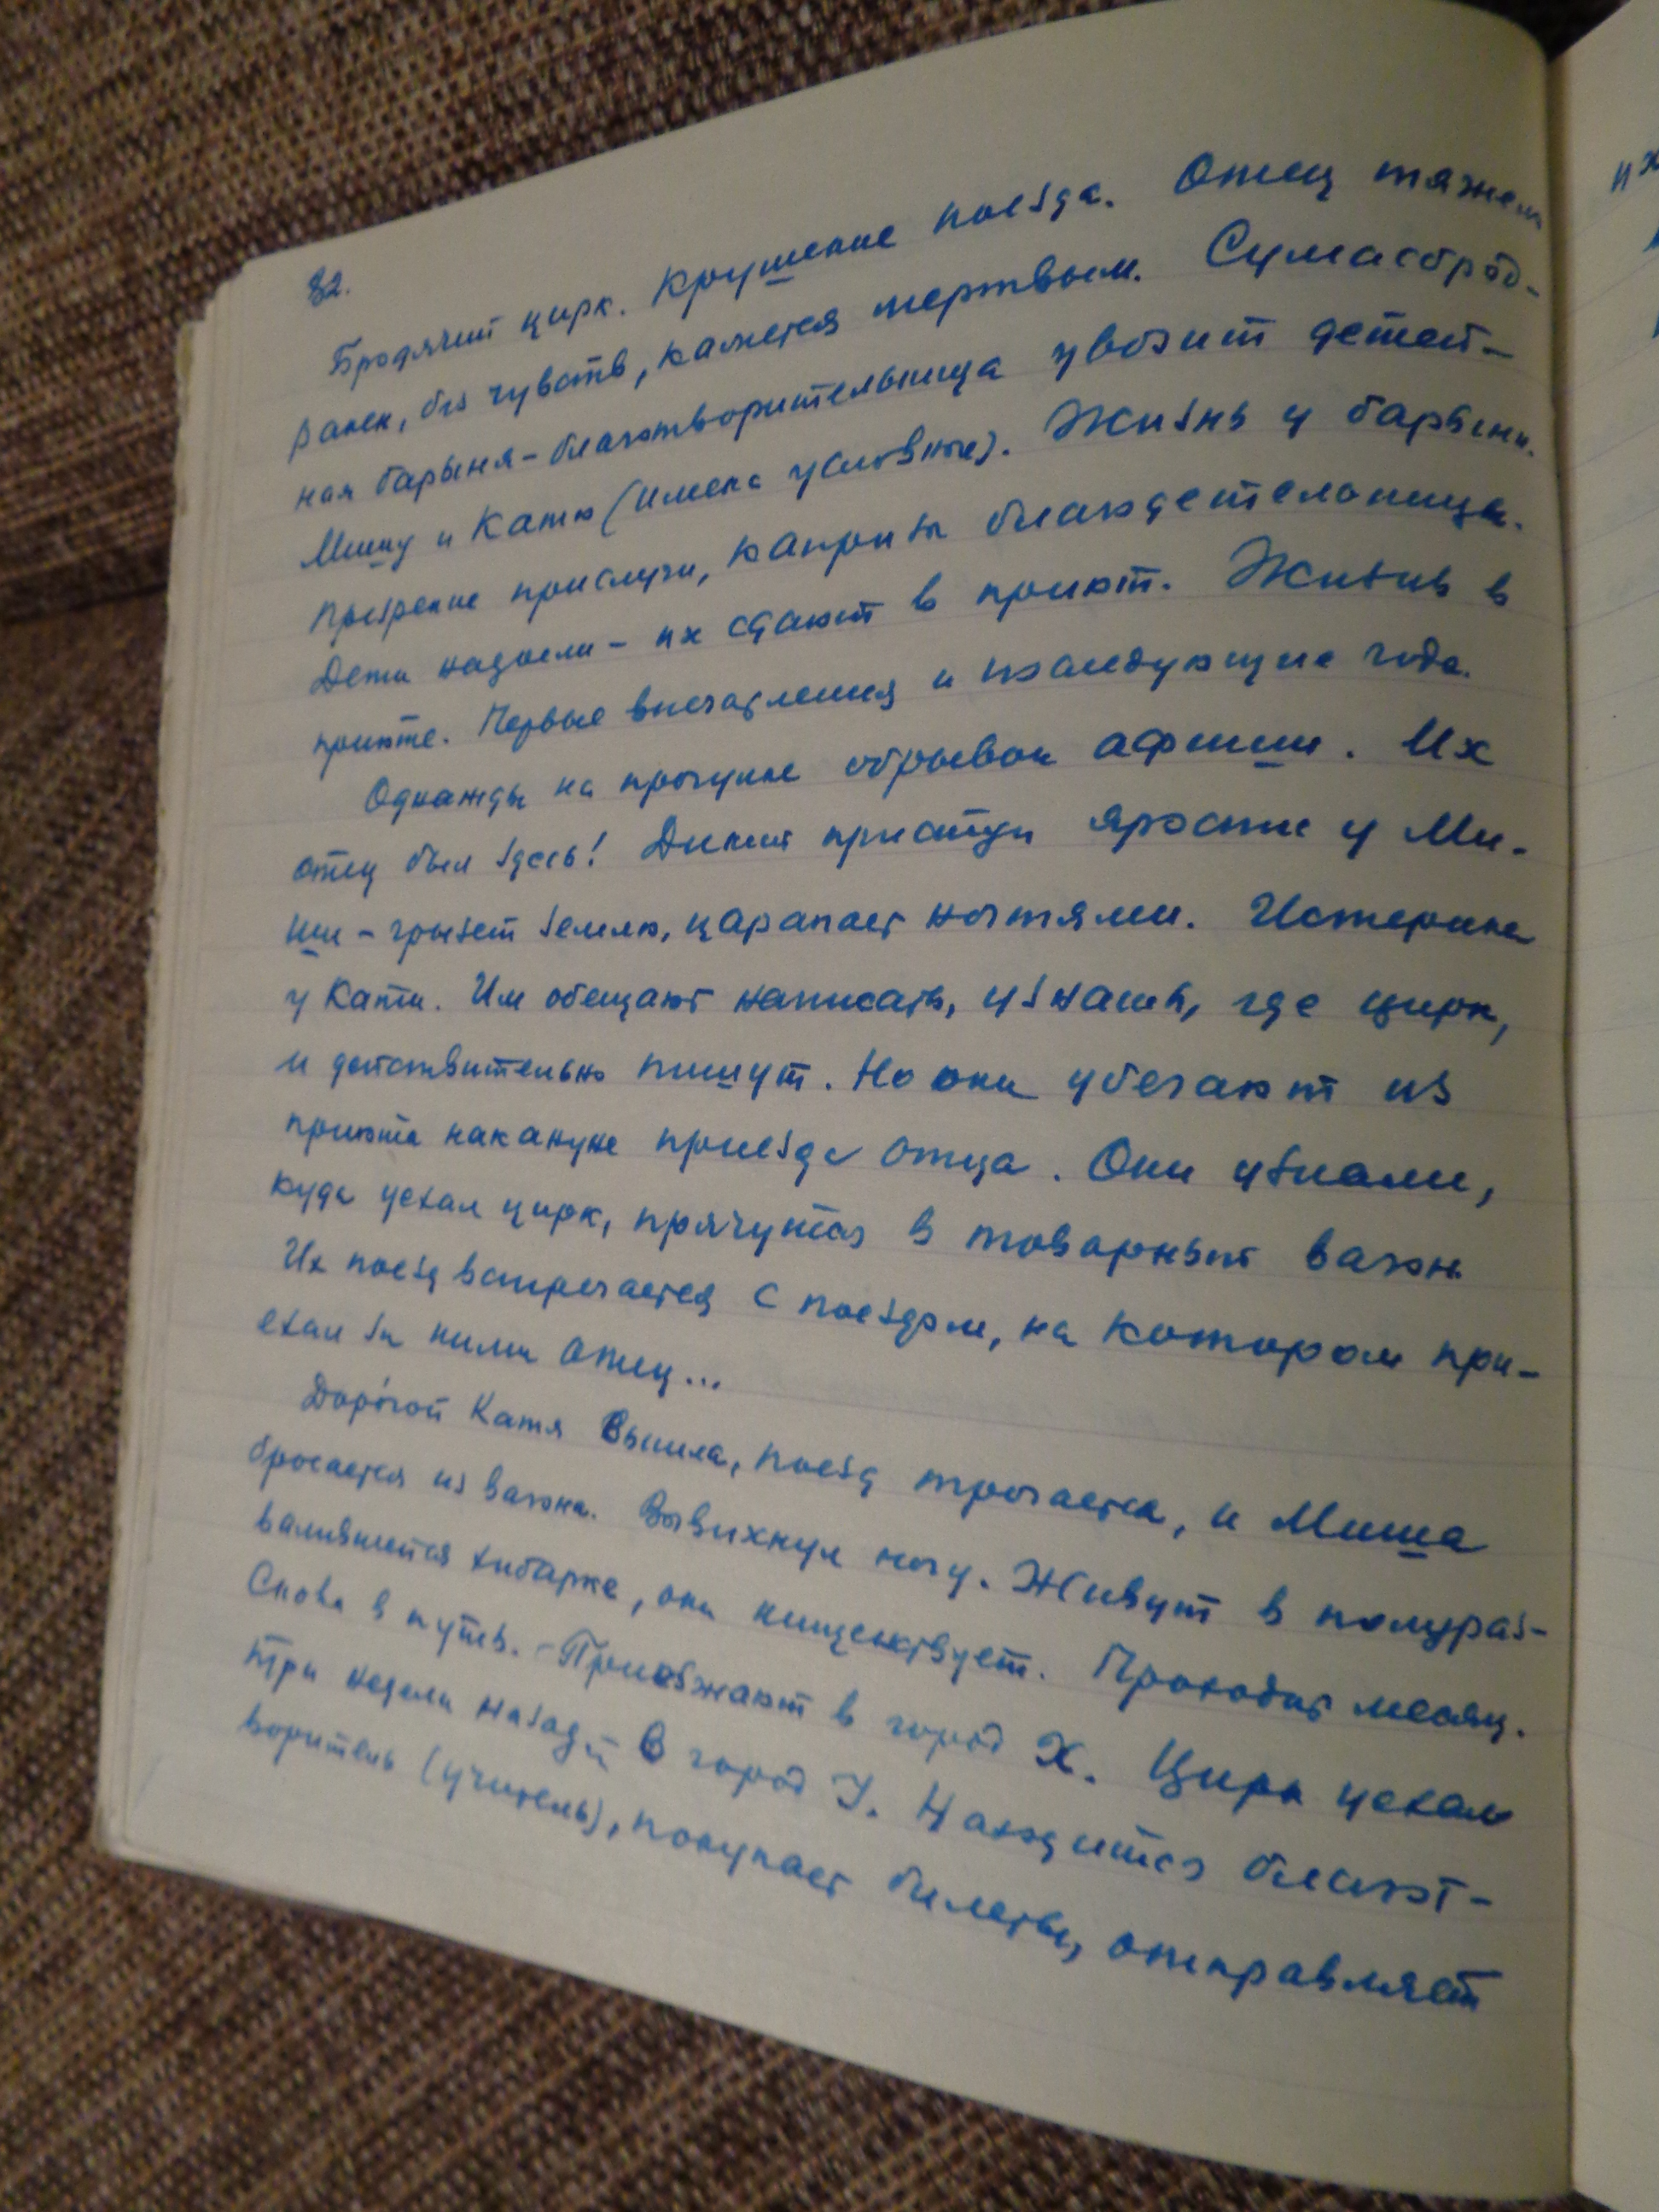 32.
Бродячий цирк. Крушение поезда. Отец тяжело
ранен, без чувств, кажется мертвым. Сумасброд-
ная барыня-благотворительница увозит детей-
Мишу и Катю (имена условные). Жизнь у барыни.
Презрение прислуги, капризы благодетельницы.
Дети надоели - их сдают в приют. Жизнь в
приюте. Первые впечатления и последующие года.
Однажды на прогулке обрывок афиши. Их
отец был здесь! Дикий приступ ярости у Ми-
ши - грызет землю, царапает ногтями. Истерика
у Кати. Им обещают написать, узнать, где цирк,
и действительно пишут. Но они убегают из
приюта накануне приезда отца. Они узнали,
куда уехал цирк, прячутся в товарный вагон.
Их поезд встречается с поездом, на котором при-
ехал за ними отец...
Доро́гой Катя вышла, поезд трогается, и Миша
бросается из вагона. Вывихнул ногу. Живут в полураз-
валившейся хибарке, она нищенствует. Проходит месяц.
Снова в путь. - Приезжают в город X. Цирк уехал
три недели назад - в город У. Находится благот-
воритель (учитель), покупает билеты, отправляет
их